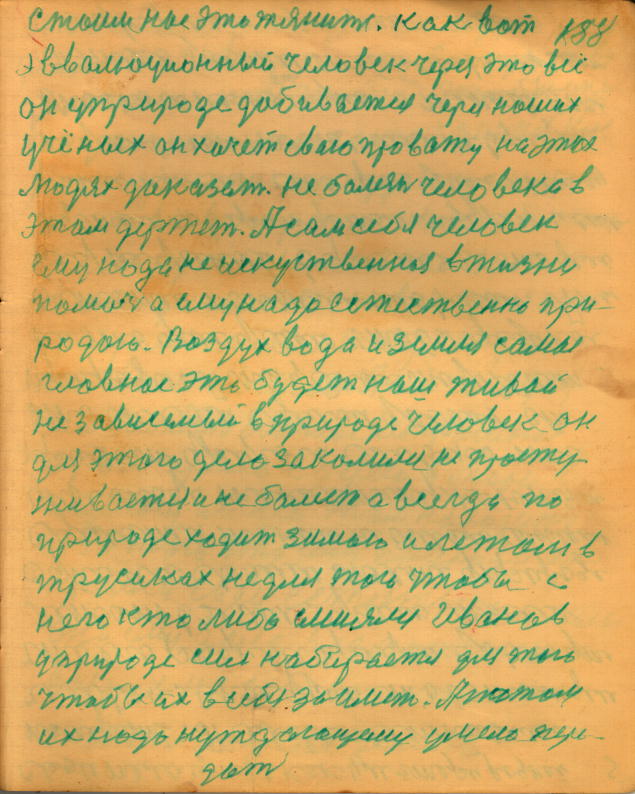 стоим нас это тянить. как вот 188
эввалюционный человек через это всё
он уприроде добивается через наших
учёных он хочет свою правату на этих
людях доказат. не болеть человека в
этом держет. А сам себя человек
ему нода не искуственная в жизни
помоч а ему надо сетественно при-
родою. Воздух вода и земля самае
главное эта будет наш живой
не зависемый вприроде человек он
для этого дело заколили не просту
живается и не балеет а всегда по
природе ходит зимою и летом в
трусиках не для того чтобы с
него кто либо смиялся Иванов
уприроде сил набирается для того
чтобы их в себя заимет. А потом
их нада нуждающему умело пере-
дат